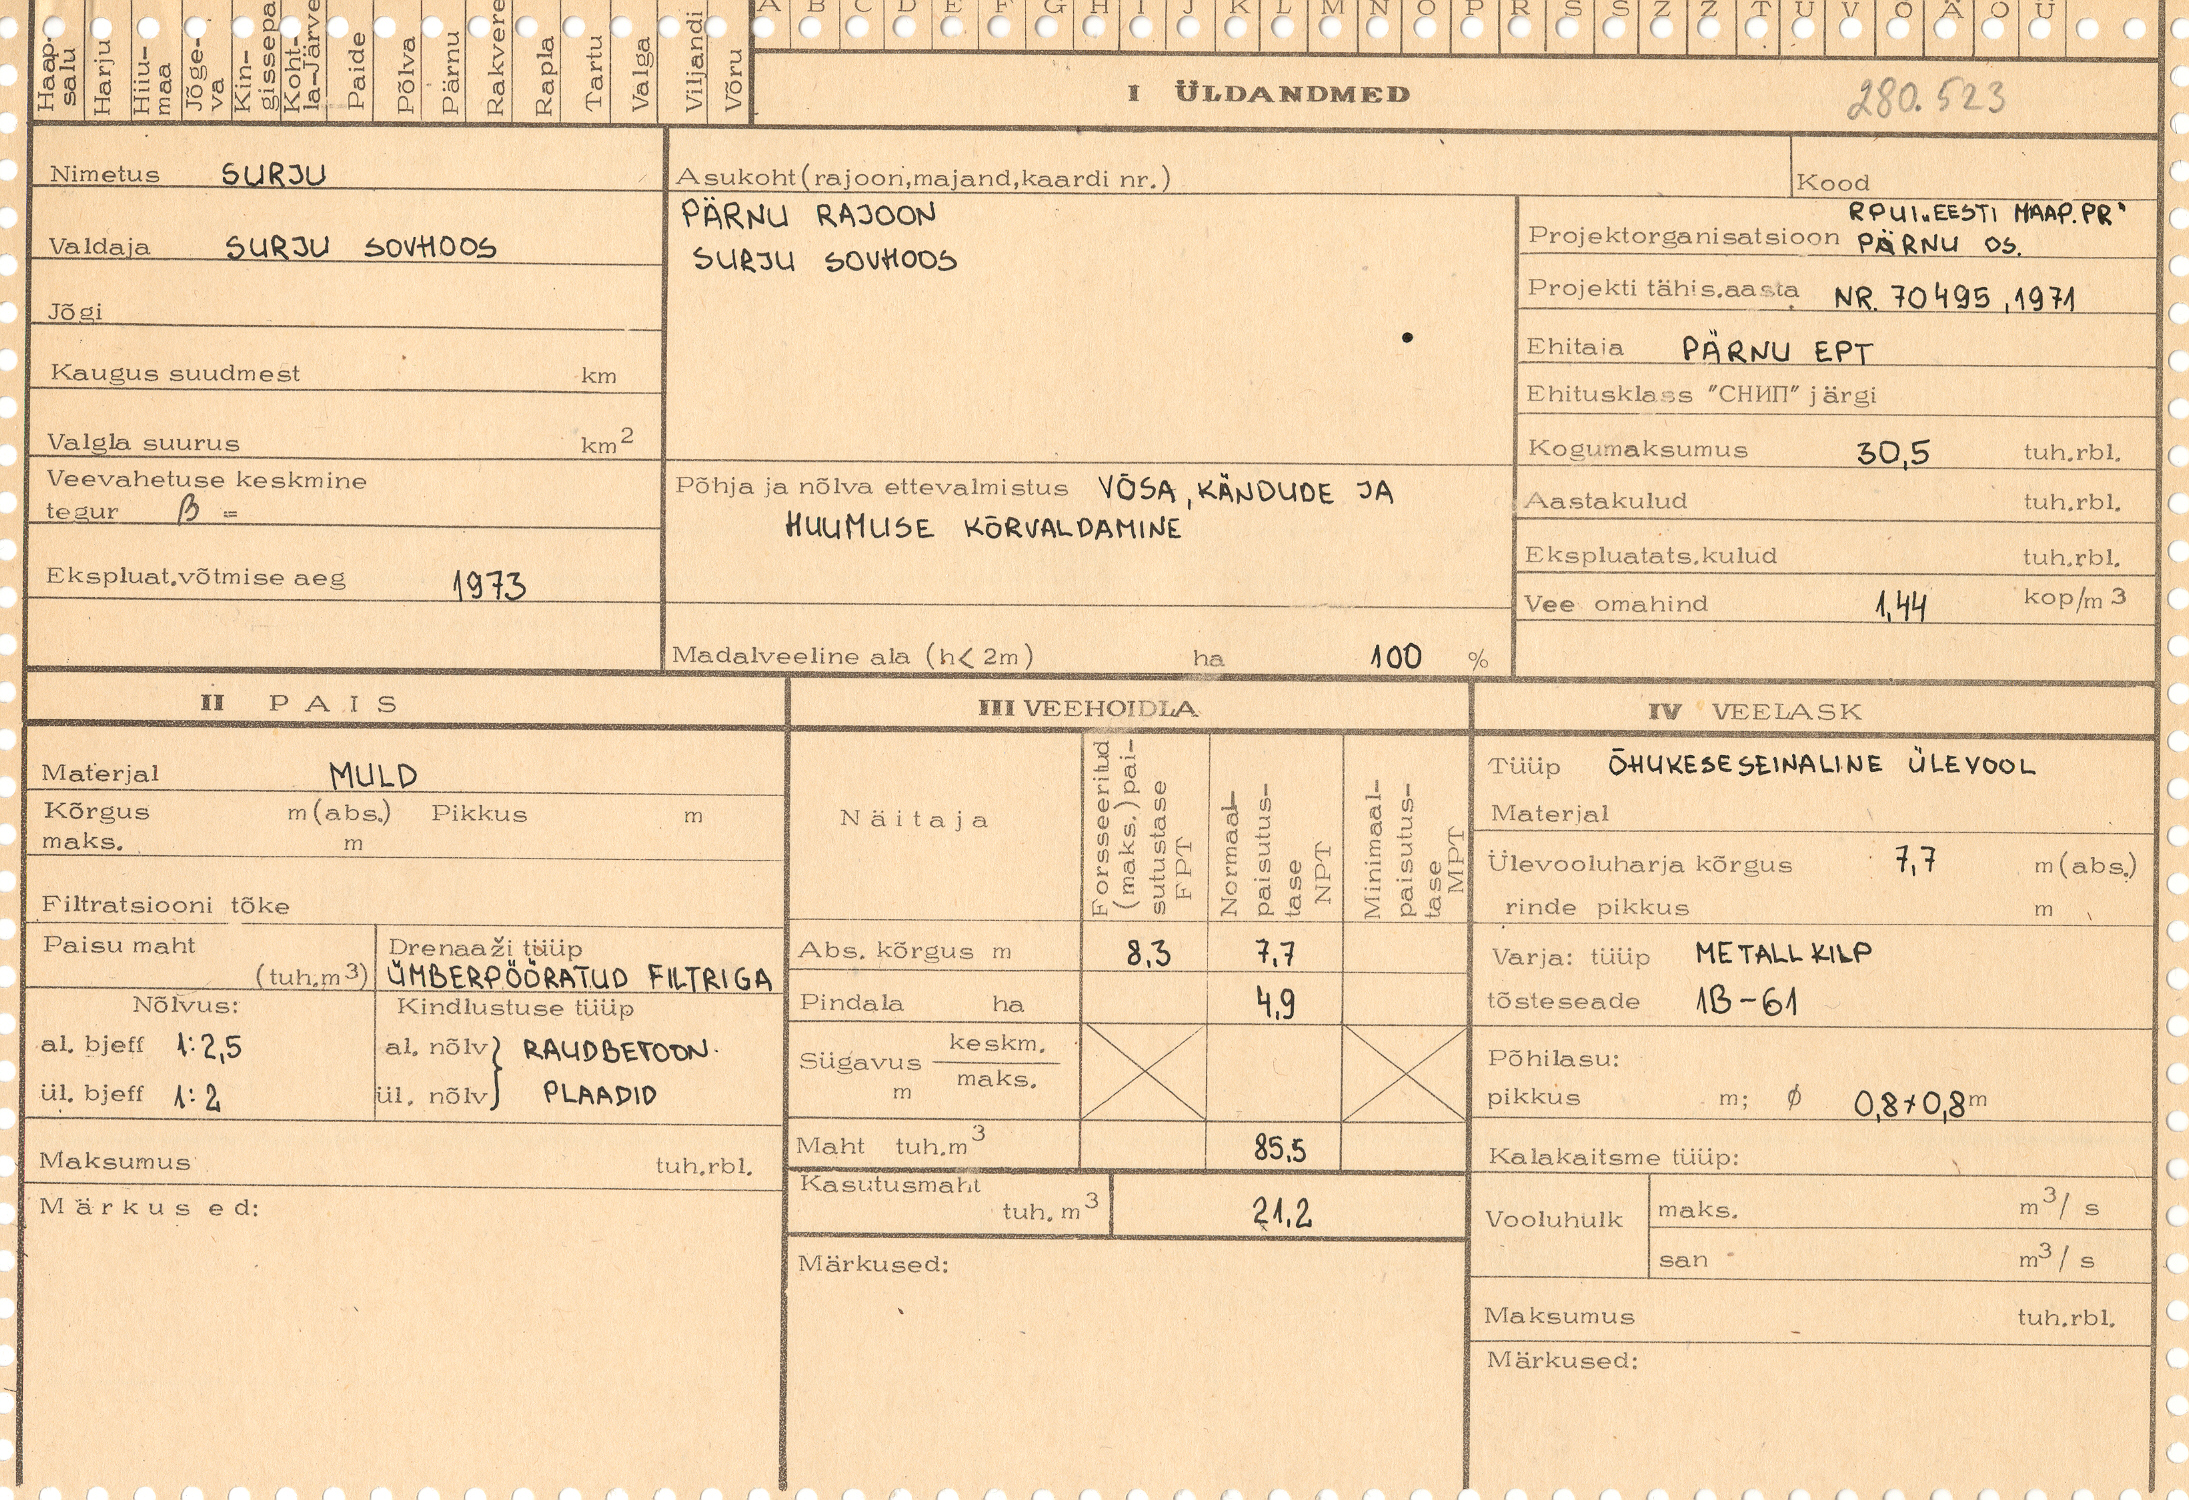 A B C D E F G H I J K L M N O P R S S Z Z T U V O A O U
Haap-
salu
Harju
Hiiu-
maa
Jõge-
va
Kin-
gissepa
Koht-
la-Järve
Paide
Põlva
Pärnu
Rakvere
Rapla
Tartu
Valga
Viljandi
Võru
I ÜLDANDMED
280.523
Nimetus SURJU
Valdaja SURJU SOVHOOS
Jõgi
Kaugus suudmest km
Valgla suurus km2
Veevahetuse keskmine
tegur β =
Ekspluat.võtmise aeg 1973
Asukoht(rajoon,majand,kaardi nr.)
PÄRNU RAJOON
SURJU SOVHOOS
Põhja ja nõlva ettevalmistus VÕSA, KÄNDUDE JA
HUUMUSE KÕRVALDAMINE
Madalveeline ala (h< 2m) ha 100 %
Kood
RPUI „EESTI MAAP.PR"
Projektorganisatsioon PÄRNU OS.
Projekti tähis.aasta NR. 70495, 1971
Ehitaja PÄRNU EPT
Ehitusklass "СНИП" järgi
Kogumaksumus 30,5 tuh.rbl.
Aastakulud tuh.rbl.
Ekspluatats.kulud tuh.rbl.
Vee omahind 1,44 kop/m3
II PAIS
Materjal MULD
Kõrgus m(abs.) Pikkus m
maks. m
Filtratsiooni tõke
Paisu maht
(tuh.m3)
Drenaaži tüüp
ÜMBERPÖÖRATUD FILTRIGA
Nõlvus:
al. bjeff 1:2,5
ül. bjeff 1:2
Kindlustuse tüüp
al. nõlv } RAUDBETOON.
ül. nõlv } PLAADID
Maksumus tuh.rbl.
Märkused:
III VEEHOIDLA
Näitaja
Forsseeritud
(maks.) pai-
sutustase
FPT
Normaal-
paisutus-
tase
NPT
Minimaal-
paisutus-
tase
MPT
Abs. kõrgus m 8,3 7,7
Pindala ha 4,9
Sügavus keskm.
m maks.
Maht tuh.m3 85,5
Kasutusmaht
tuh.m3 21,2
Märkused:
IV VEELASK
Tüüp ÕHUKESESEINALINE ÜLEVOOL
Materjal
Ülevooluharja kõrgus 7,7 m(abs.)
rinde pikkus m
Varja: tüüp METALLKILP
tõsteseade 1B-61
Põhilasu:
pikkus m; ϕ 0,8×0,8m
Kalakaitsme tüüp:
Vooluhulk maks. m3/s
san m3/s
Maksumus tuh.rbl.
Märkused: